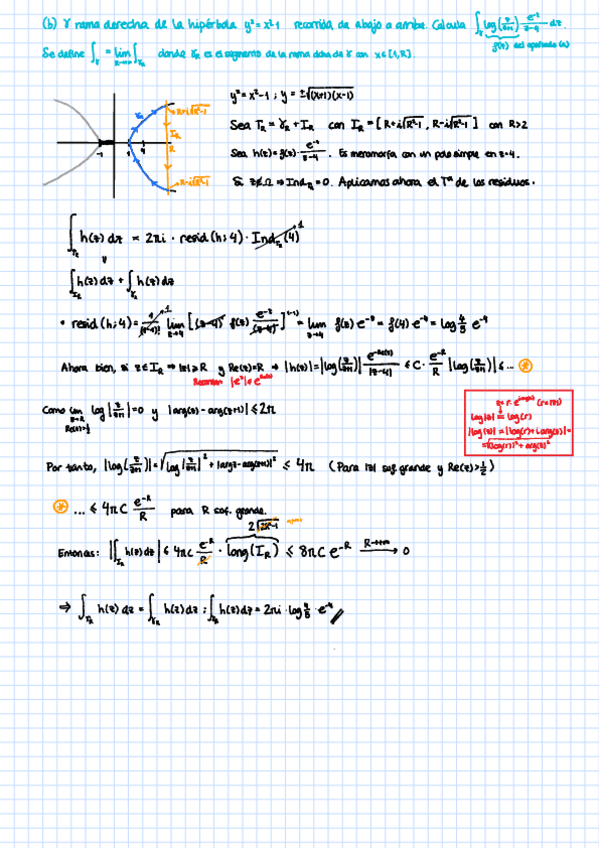 (b) γ rama derecha de la hipérbola y² = x²-1 recorrida de abajo a arriba. Calcula ∫_γ log(z/(z+1)) e^{-z}/(z-4) dz.
f(z) del apartado (a)
Se define ∫_γ = lim_{R→∞} ∫_{γ_R} donde γ_R es el segmento de la rama dada de γ con x∈[1,R].
y² = x²-1 ; y = ±√((x+1)(x-1))
R+i√(R²-1)
γ_R
I_R
R
-1 1 4
R-i√(R²-1)
Sea Γ_R = γ_R + I_R con I_R = [R+i√(R²-1), R-i√(R²-1)] con R>2
Sea h(z) = f(z) · e^{-z}/(z-4). Es meromorfa con un polo simple en z=4.
Si z∉Ω ⇒ Ind = 0. Aplicamos ahora el Tª de los residuos.
∫ h(z) dz = 2πi · resid(h; 4) · Ind (4) 1
∫_{I_R} h(z) dz + ∫_{γ_R} h(z) dz
• resid(h; 4) = 1 lim_{z→4} [(z-4) f(z) e^{-z}/(z-4)] = lim_{z→4} f(z) e^{-z} = f(4) e^{-4} = log 4/5 e^{-4}
Ahora bien, si z∈I_R ⇒ |z|≥R y Re(z)=R ⇒ |h(z)| = |log(z/(z+1))| e^{-Re(z)}/|z-4| ≤ C · e^{-R}/R |log(z/(z+1))| ≤ ... ⊛
Como lim log|z/(z+1)| = 0 y |arg(z) - arg(z+1)| ≤ 2π
log|z| = log(r)
Por tanto, |log(z/(z+1))| = √(log|z/(z+1)|² + |argz - arg(z+1)|²) ≤ 4π (Para |z| suf. grande y Re(z)>1/2)
⊛ ... ≤ 4πC e^{-R}/R para R suf. grande.
2√(R²-1)
Entonces: |∫_{I_R} h(z) dz| ≤ 4πC e^{-R}/R · long(I_R) ≤ 8πC e^{-R} R→+∞ → 0
⇒ ∫ h(z) dz = ∫ h(z) dz ; ∫ h(z) dz = 2πi · log 4/5 · e^{-4}